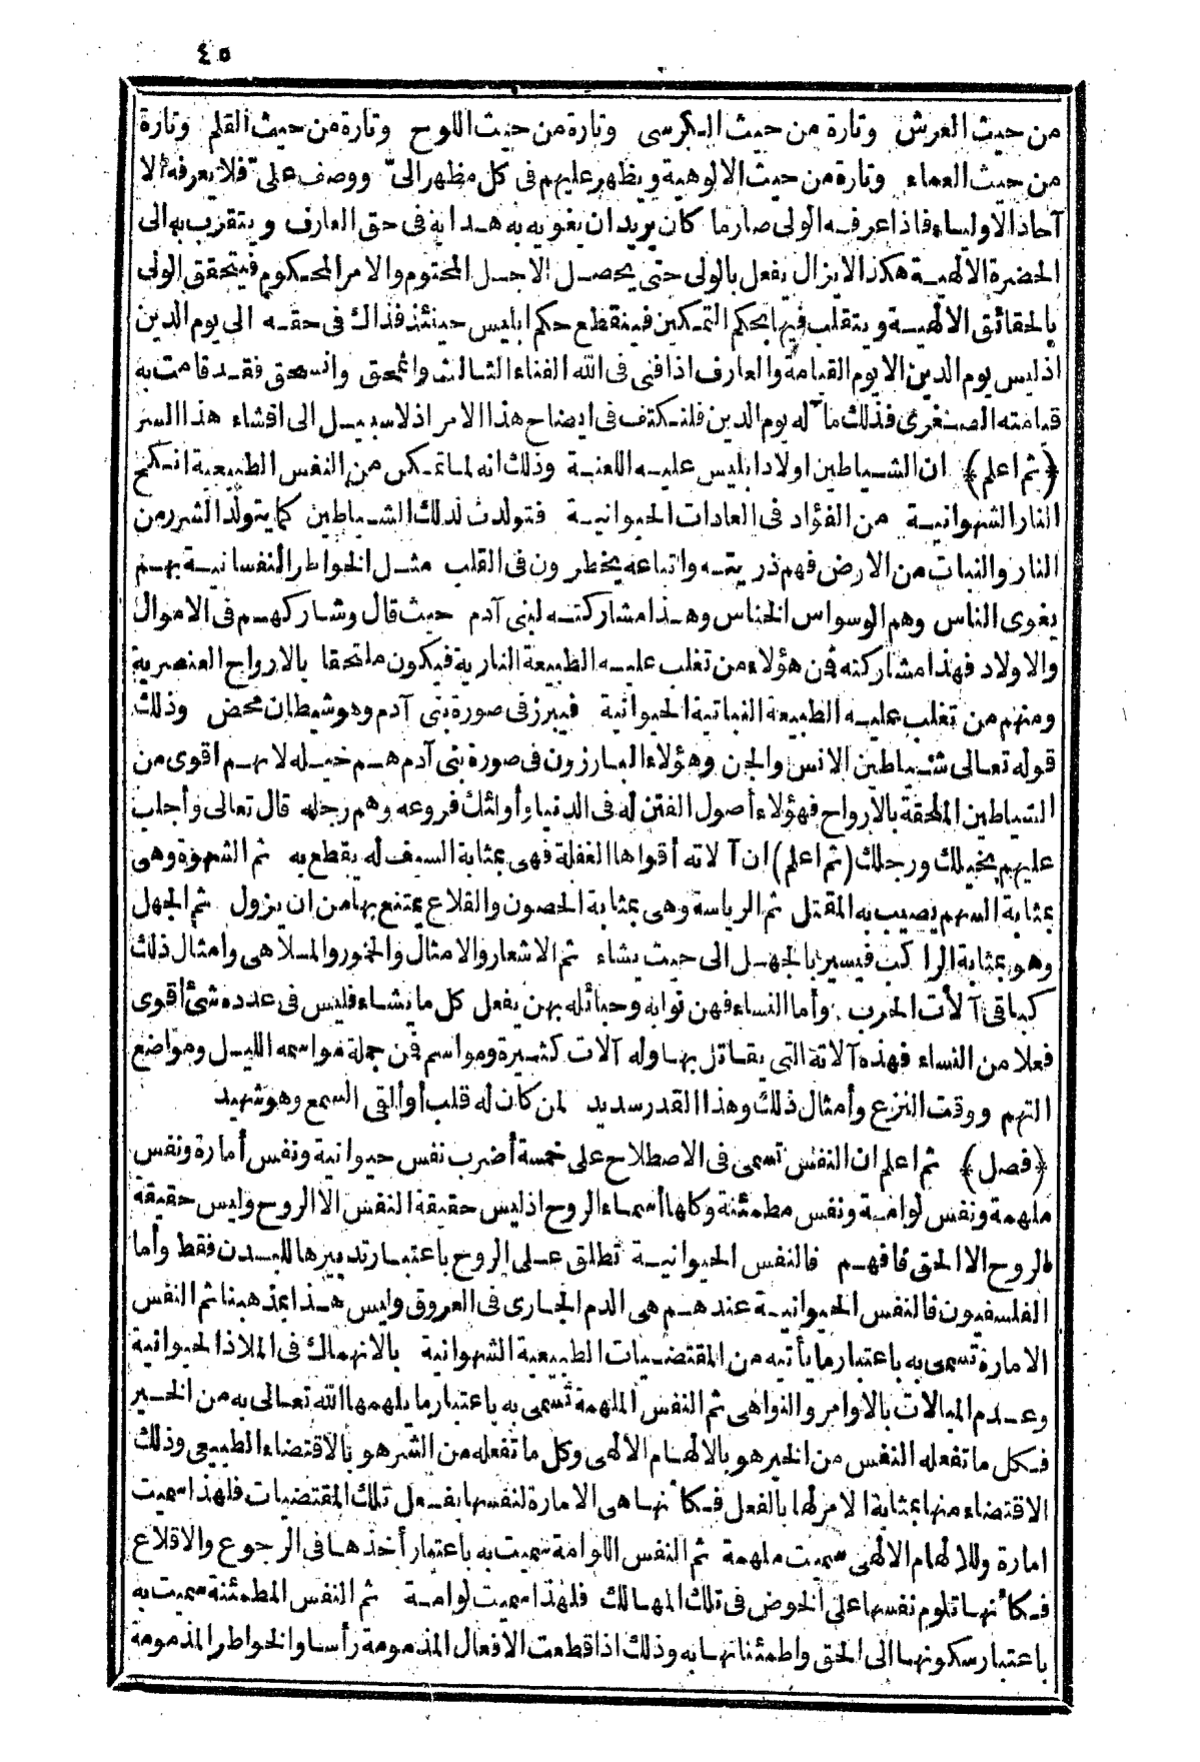 ٤٥
من حيث العرش وتارة من حيث الكرسى وتارة من حيث اللوح وتارة من حيث القلم وتارة
من حيث العماء وتارة من حيث الالوهية ويظهر عليهم فى كل مظهر الىّ ووصف علىّ فلا يعرفه الا
آحاد الاولياء فاذا عرفه الولى صار ما كان يريد ان يغويه به هداية فى حق العارف ويتقرب به الى
الحضرة الالهية هكذا لا يزال يفعل بالولى حتى يحصل الاجل المحتوم والامر المحكوم فيتحقق الولى
بالحقائق الالهية ويتقلب فيها بحكم التمكين فينقطع حكم ابليس حينئذ فذاك فى حقه الى يوم الدين
اذ ليس يوم الدين الا يوم القيامة والعارف اذا فنى فى الله الفناء الثالث وانمحق وانسحق فقد قامت به
قيامته الصغرى فذلك ماله يوم الدين فلنكتف فى ايضاح هذا الامر اذ لا سبيل الى افشاء هذا السر
﴿ثم اعلم﴾ ان الشياطين اولاد ابليس عليه اللعنة وذلك انه لما تمكن من النفس الطبيعية انكح
النار الشهوانية من الفؤاد فى العادات الحيوانية فتولدت لذلك الشياطين كما يتولد الشرر من
النار والنبات من الارض فهم ذريته واتباعه يخطرون فى القلب مثل الخواطر النفسانية بهم
يغوى الناس وهم الوسواس الخناس وهذا مشاركته لبنى آدم حيث قال وشاركهم فى الاموال
والاولاد فهذا مشاركته فمن هؤلاء من تغلب عليه الطبيعة النارية فيكون ملتحقا بالارواح العنصرية
ومنهم من تغلب عليه الطبيعة النباتية الحيوانية فيبرز فى صورة بنى آدم وهو شيطان محض وذلك
قوله تعالى شياطين الانس والجن وهؤلاء البارزون فى صورة بنى آدم هم خيله لانهم اقوى من
الشياطين الملحقة بالارواح فهؤلاء أصول الفتن له فى الدنيا وأولئك فروعه وهم رجله قال تعالى وأجلب
عليهم بخيلك ورجلك (ثم اعلم) ان آلاته أقواها الغفلة فهى بمثابة السيف له يقطع به ثم الشهوة وهى
بمثابة السهم يصيب به المقتل ثم الرياسة وهى بمثابة الحصون والقلاع يمتنع بها من ان يزول ثم الجهل
وهو بمثابة الراكب فيسير بالجهل الى حيث يشاء ثم الاشعار والامثال والخمور والملاهى وامثال ذلك
كباقى آلات الحرب وأما النساء فهن نوابه وحبائله بهن يفعل كل ما يشاء فليس فى عدده شئ أقوى
فعلا من النساء فهذه آلاته التى يقاتل بها وله آلات كثيرة ومواسم فمن جملة مواسمه الليل ومواضع
التهم ووقت النزع وأمثال ذلك وهذا القدر سديد لمن كان له قلب أو ألقى السمع وهو شهيد
﴿فصل﴾ ثم اعلم ان النفس تسمى فى الاصطلاح على خمسة أضرب نفس حيوانية ونفس أمارة ونفس
ملهمة ونفس لوامة ونفس مطمئنة وكلها أسماء الروح اذ ليس حقيقة النفس الا الروح وليس حقيقة
الروح الا الحق فافهم فالنفس الحيوانية تطلق على الروح باعتبار تدبيرها للبدن فقط وأما
الفلسفيون فالنفس الحيوانية عندهم هى الدم الجارى فى العروق وليس هذا بمذهبنا ثم النفس
الامارة تسمى به باعتبار ما يأتيه من المقتضيات الطبيعية الشهوانية بالانهماك فى الملاذ الحيوانية
وعدم المبالات بالاوامر والنواهى ثم النفس الملهمة تسمى به باعتبار ما يلهمها الله تعالى به من الخير
فكل ما تفعله النفس من الخير هو بالالهام الالهى وكل ما تفعله من الشر هو بالاقتضاء الطبيعى وذلك
الاقتضاء منها بمثابة الامر لها بالفعل فكأنها هى الامارة لنفسها بفعل تلك المقتضيات فلهذا سميت
امارة وللالهام الالهى سميت ملهمة ثم النفس اللوامة سميت به باعتبار أخذها فى الرجوع والاقلاع
فكأنها تلوم نفسها على الخوض فى تلك المهالك فلهذا سميت لوامة ثم النفس المطمئنة سميت به
باعتبار سكونها الى الحق واطمئنانها به وذلك اذا قطعت الافعال المذمومة رأسا والخواطر المذمومة